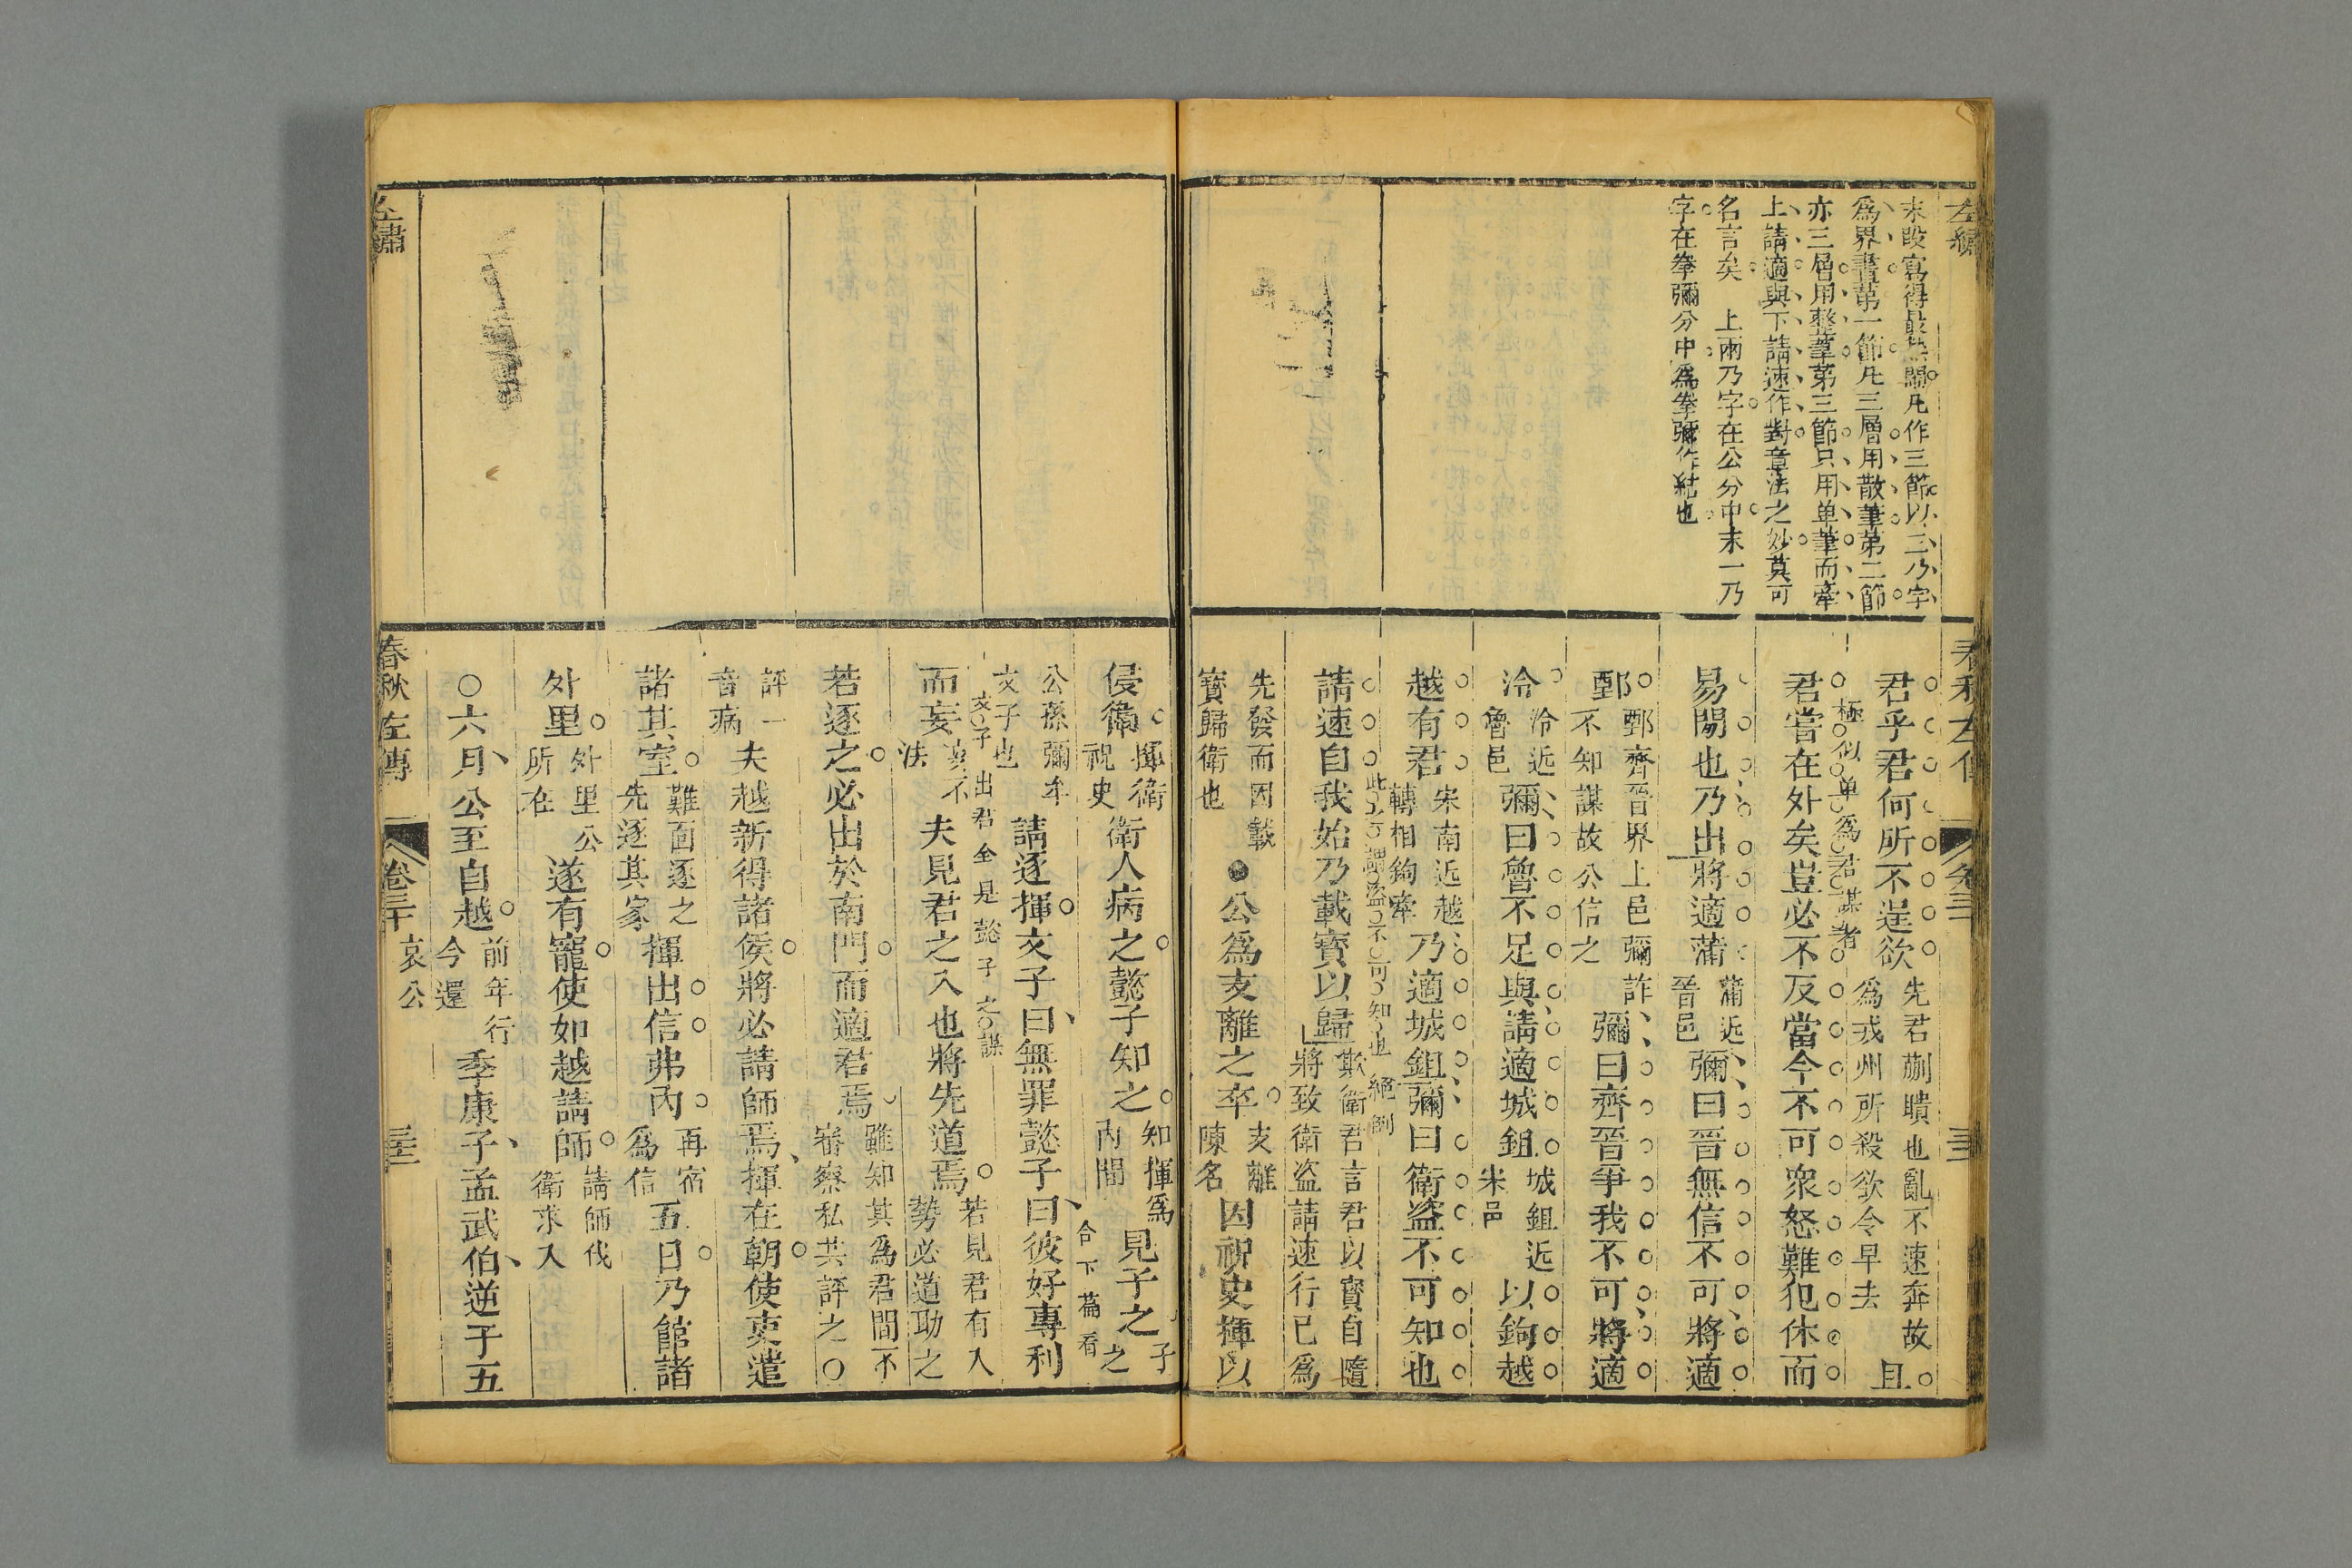 左繡
末段寫得最熱鬧凡作三節以三乃字
爲界畫第一節凡三層用散筆第二節
亦三層用整筆第三節只用单筆而牽
上請適與下請速作對章法之妙莫可
名言矣　上兩乃字在公分中末一乃
字在拳彌分中爲拳彌作結也
春秋左傳
卷三
君乎君何所不逞欲先君蒯聵也亂不速奔故爲戎州所殺欲令早去且
極似单爲君謀者
君嘗在外矣豈必不反當今不可衆怒難犯休而
易閒也乃出將適蒲蒲近晉邑彌曰晉無信不可將適
鄄鄄齊晉界上邑彌詐不知謀故公信之彌曰齊晉爭我不可將適
泠泠近魯邑彌曰魯不足與請適城鉏城鉏近宋邑以鉤越
越有君宋南近越轉相鉤牽乃適城鉏彌曰衛盜不可知也
此謂盜不可知也
絕倒
請速自我始乃載寶以歸欺衛君言君以寶自隨將致衛盜請速行己爲
先發而因載寶歸衛也●公爲支離之卒支離陳名因祝史揮以
侵衛揮衛祝史衛人病之懿子知之知揮爲內間見子之子之
合下篇看
公孫彌牟文子也請逐揮文子曰無罪懿子曰彼好專利
文子出君全是懿子之謀
而妄妄不法夫見君之入也將先道焉若見君有入勢必道助之
若逐之必出於南門而適君焉雖知其爲君間不審察私共評之○
評一音病夫越新得諸侯將必請師焉揮在朝使吏遣
諸其室難面逐之先逐其家揮出信弗內再宿爲信五日乃館諸
外里外里公所在遂有寵使如越請師請師伐衛求入
○六月公至自越前年行今還季康子孟武伯逆于五
左繡
春秋左傳
卷三十
哀公